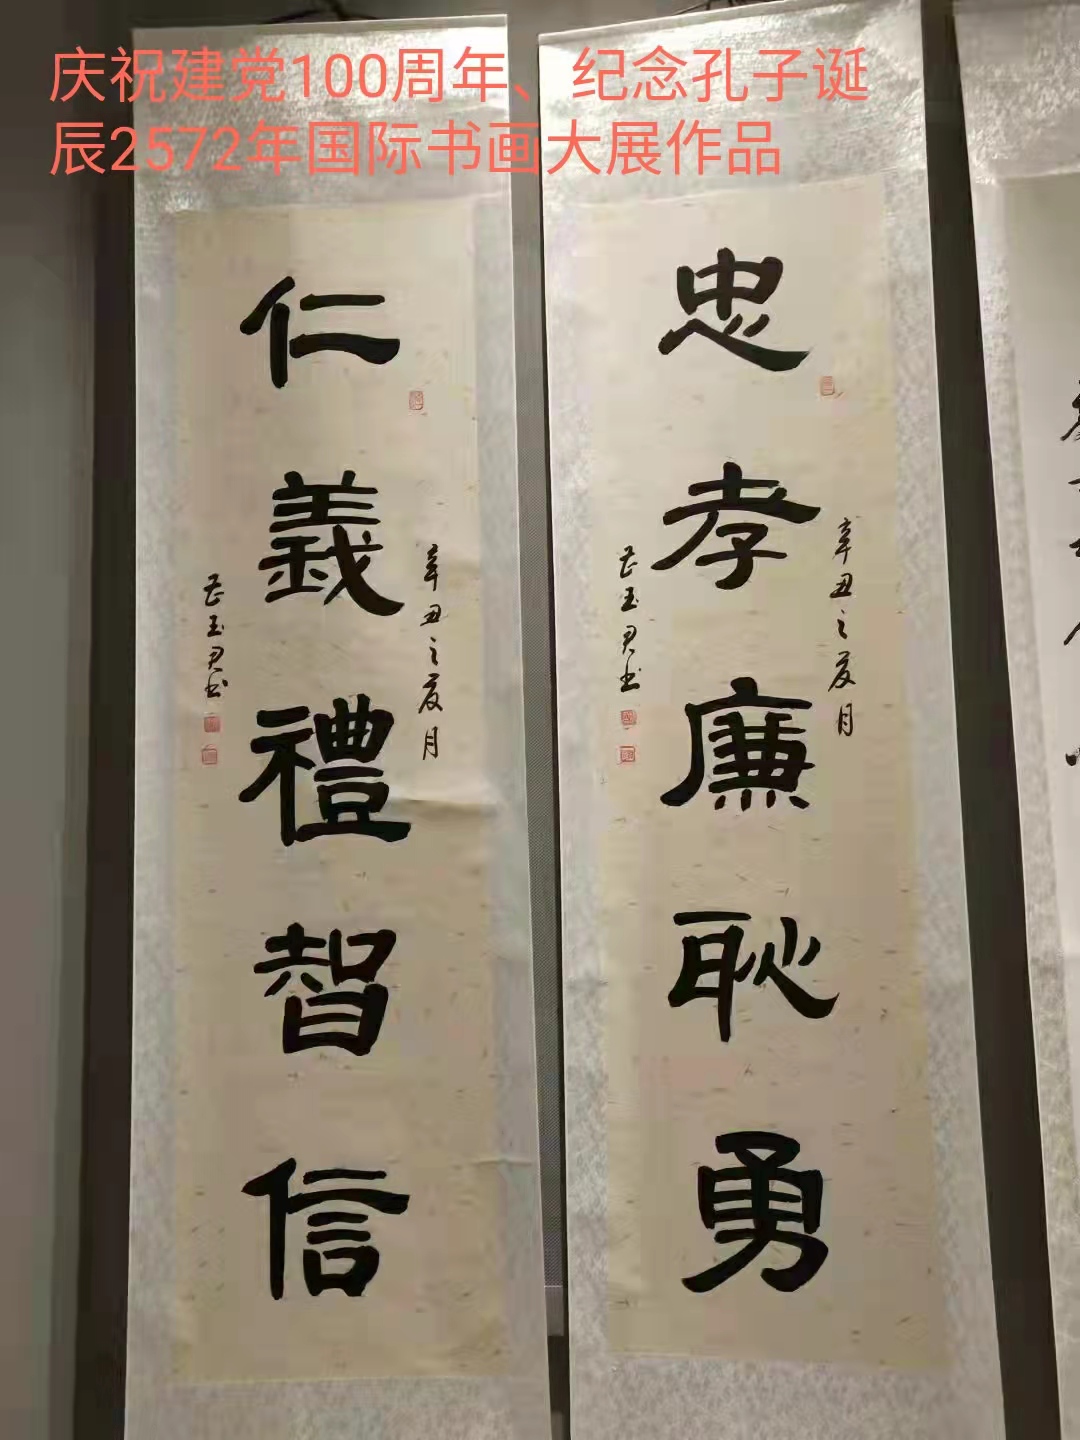 庆祝建党100周年、纪念孔子诞
辰2572年国际书画大展作品
忠孝廉耻勇
辛丑之夏月
玉君书
仁義禮智信
辛丑之夏月
玉君书